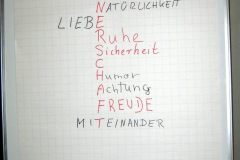 NATÜRLICHKEIT
LIEBE
Ruhe
Sicherheit
C
Humor
Achtung
FREUDE
MITEINANDER